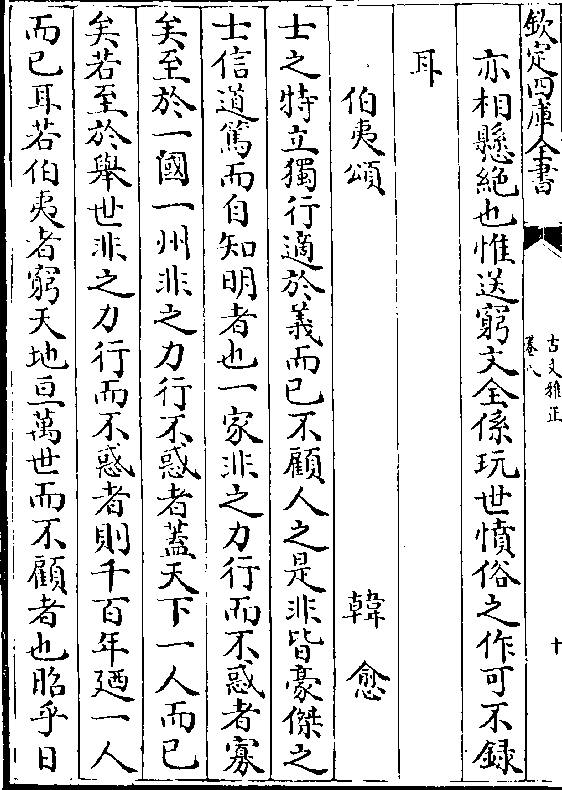 欽定四庫全書
古文雅正
卷八
十
亦相懸絶也惟送窮文全係玩世憤俗之作可不録
耳
伯夷頌 韓愈
士之特立獨行適於義而已不顧人之是非皆豪傑之
士信道篤而自知明者也一家非之力行而不惑者寡
矣至於一國一州非之力行不惑者蓋天下一人而已
矣若至於舉世非之力行而不惑者則千百年廼一人
而已耳若伯夷者窮天地亘萬世而不顧者也昭乎日